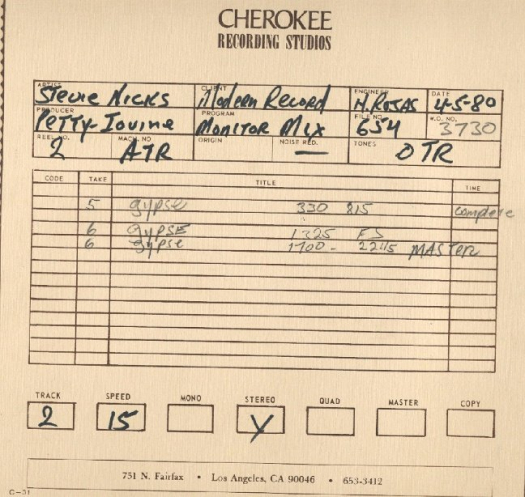 CHEROKEE
RECORDING STUDIOS
ARTIST CLIENT ENGINEER DATE
Stevie Nicks Modern Record H. Rojas 4-5-80
PRODUCER PROGRAM FILE NO. W.O. NO.
Petty-Iovine Monitor Mix 654 3730
REEL NO. MACH. NO. ORIGIN NOISE RED. TONES
2 ATR — OTR
CODE TAKE TITLE TIME
5 gypse 330 815 complete
6 gypse 1325 FS
6 gypse 1700 - 2215 MASTER
TRACK SPEED MONO STEREO QUAD MASTER COPY
2 15 Y
751 N. Fairfax • Los Angeles, CA 90046 • 653-3412
C-31